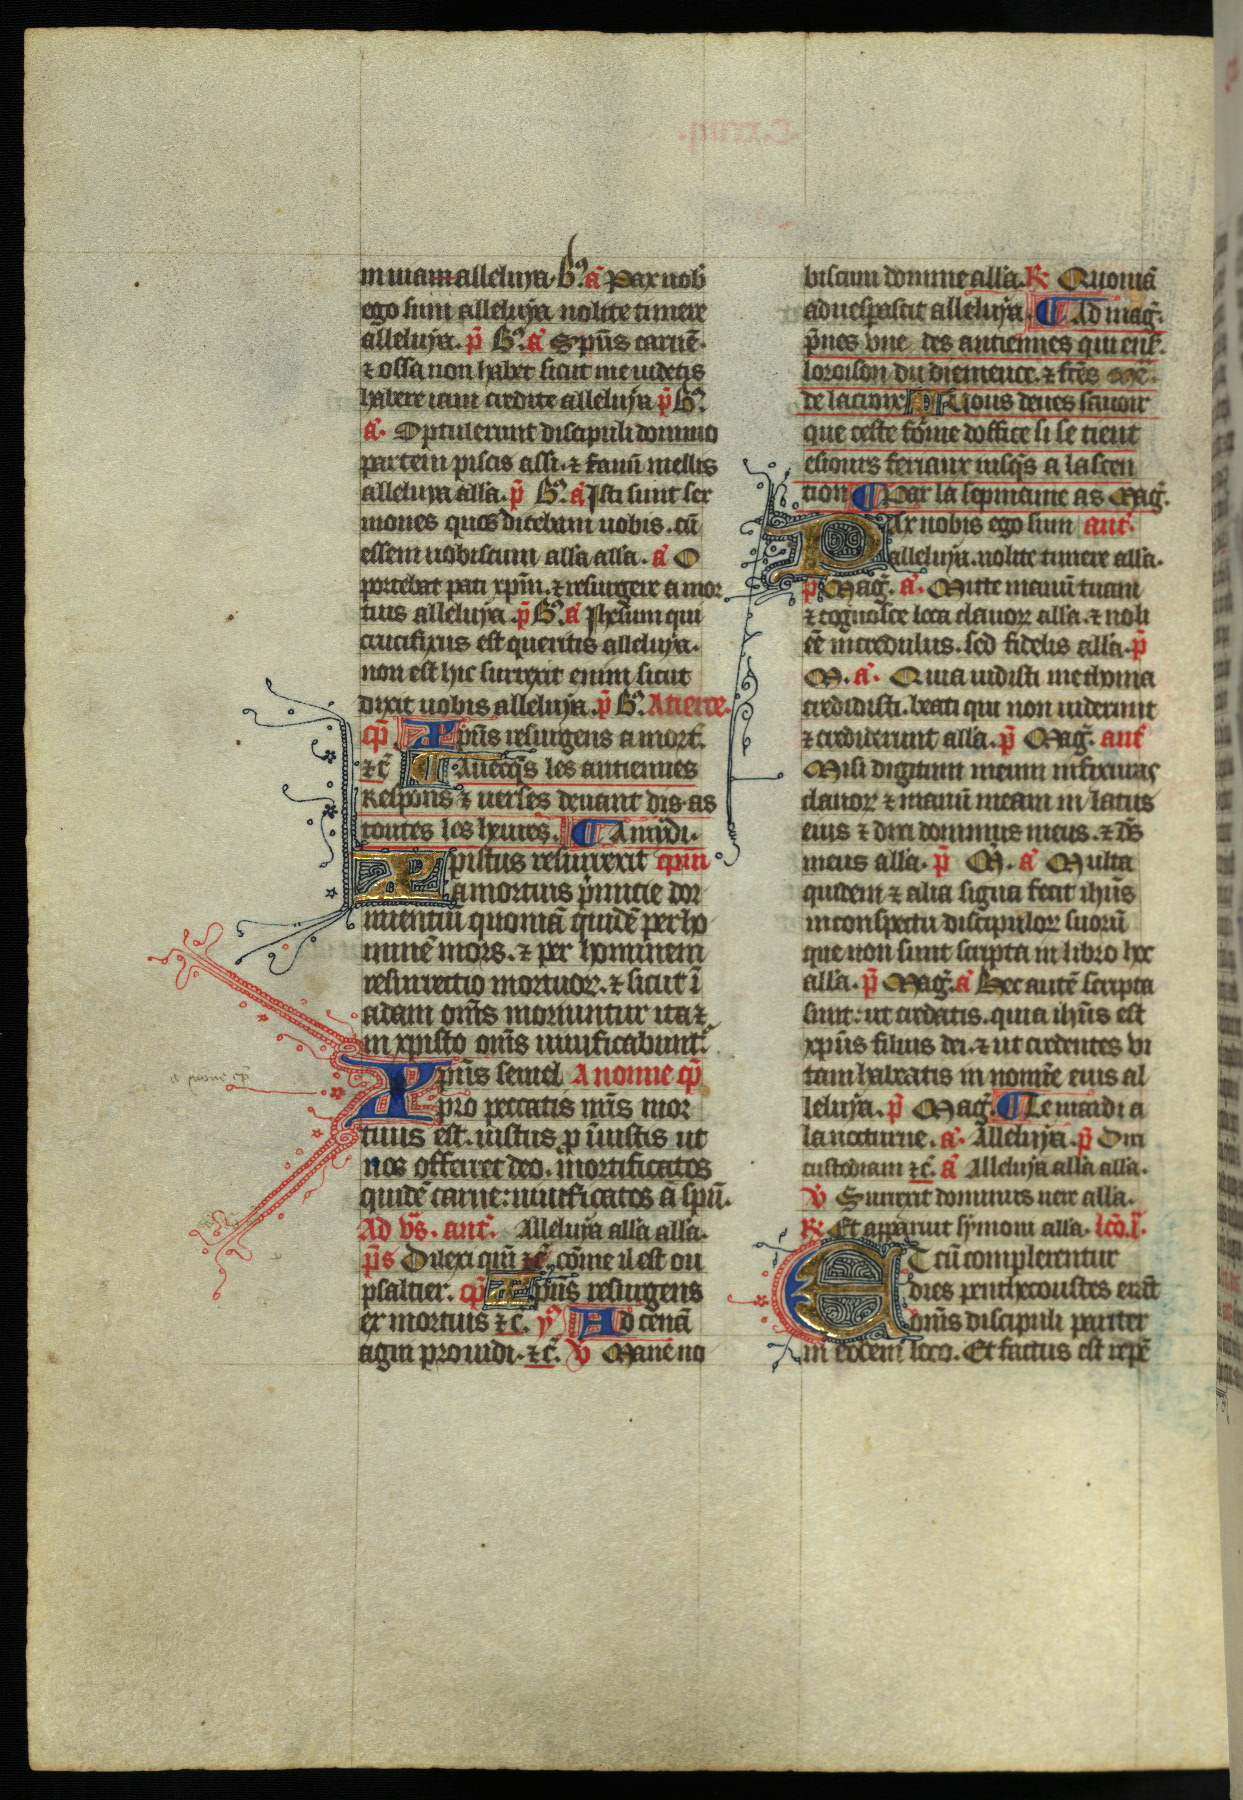 m uiam alleluya. b9. a᷑ Pax nob̄
ego sum alleluya nolite timere
alleluya. p̄ b9. a᷑ Spūs carnē.
⁊ ossa non habet sicut me uidetis
habere iam credite alleluya p̄ b9.
a᷑. Optulerunt discipuli domino
partem piscis assi. ⁊ fauū mellis
alleluya all'a. p̄ b9. a᷑ Isti sunt ser
mones quos dicebam uobis. cū
essem uobiscum all'a all'a. a᷑ O
portebat pati xpm̄. ⁊ resurgere a mor
tuis alleluya. p̄ b9. a᷑ Ihesum qui
crucifixus est queritis alleluya.
non est hic surrexit enim sicut
dixit uobis alleluya. p̄ b9. A tierce.
cp̄ Xpūs resurgens a mort᷑.
⁊c̄ Auecq̄s les antiennes
Respons ⁊ uerses deuant dis. as
toutes les heures. A midi.
Xpistus resurrexit cpm
a mortuis p̄mitie dor
mientiū quoniā quidē per ho
minē mors. ⁊ per hominem
resurrectio mortuor. ⁊ sicut ī
adam om̄s moriuntur ita ⁊
in xpisto om̄s uiuificabunt᷑.
Xpūs semel A nonne cp̄
pro peccatis nr̄is mor
tuus est. iustus p iniustis ut
nos offerret deo. mortificatos
quidē carne: uiuificatos ā spū.
Ad vs̄. ant᷑. Alleluya all'a all'a.
p̄s Dilexi qm̄ ⁊c̄. cōme il est ou
psaltier. cp̄ Xpūs resurgens
ex mortuis ⁊c̄. y9 Ad cenā
agni prouidi. ⁊c̄. v̄ Mane no
biscum domine all'a. R Quoniā
aduespascit alleluya. Ad mag᷑.
p̄nes vne des antiennes qui ens̄.
loroison du diemence. ⁊ frēs
de la croix Uous deues sauoir
que ceste fōme doffice si se tient
es iours feriaux iusq̄s a lascen
tion Par la sepmeine as Mag᷑.
Pax nobis ego sum ant᷑.
alleluya. nolite timere all'a.
p̄ Mag᷑. a᷑. Mitte manū tuam
⁊ cognosce loca clauor all'a. ⁊ noli
eē incredulus. sed fidelis all'a. p̄
M. a᷑. Quia uidisti me thoma
credidisti. beati qui non uiderunt
⁊ crediderunt all'a. p̄ Mag᷑. ant᷑
Nisi digitum meum in fixuras
clauor ⁊ manū meam in latus
eius ⁊ dixi dominus meus. ⁊ ds̄
meus all'a. p̄ M. a᷑ Multa
quidem ⁊ alia signa fecit ihūs
in conspectu discipulor suorū
que non sunt scripta in libro hoc
all'a. p̄ Mag᷑. a᷑ Hec autē scripta
sunt: ut credatis. quia ihūs est
xpūs filius dei. ⁊ ut credentes vi
tam habeatis in nomīe eius al
leluya. p̄ Mag᷑. Le mardi a
la nocturne. a᷑. Alleluya. p̄ Dixi
custodiam ⁊c̄. a᷑ Alleluya all'a all'a.
v̄ Surrexit dominus uere all'a.
R Et apparuit symoni all'a. lcō.i.
Et cū complerentur
dies penthecoustes erāt
om̄s discipuli pariter
in eodem loco. Et factus est repē